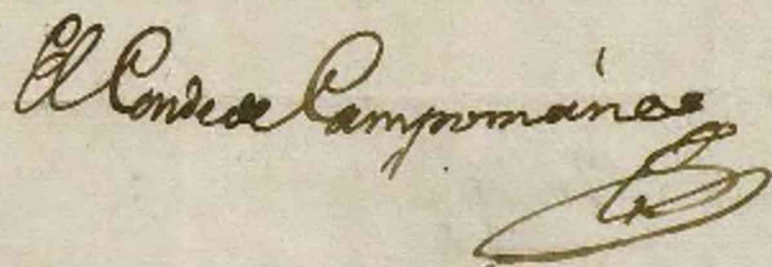 El Conde de Campománes